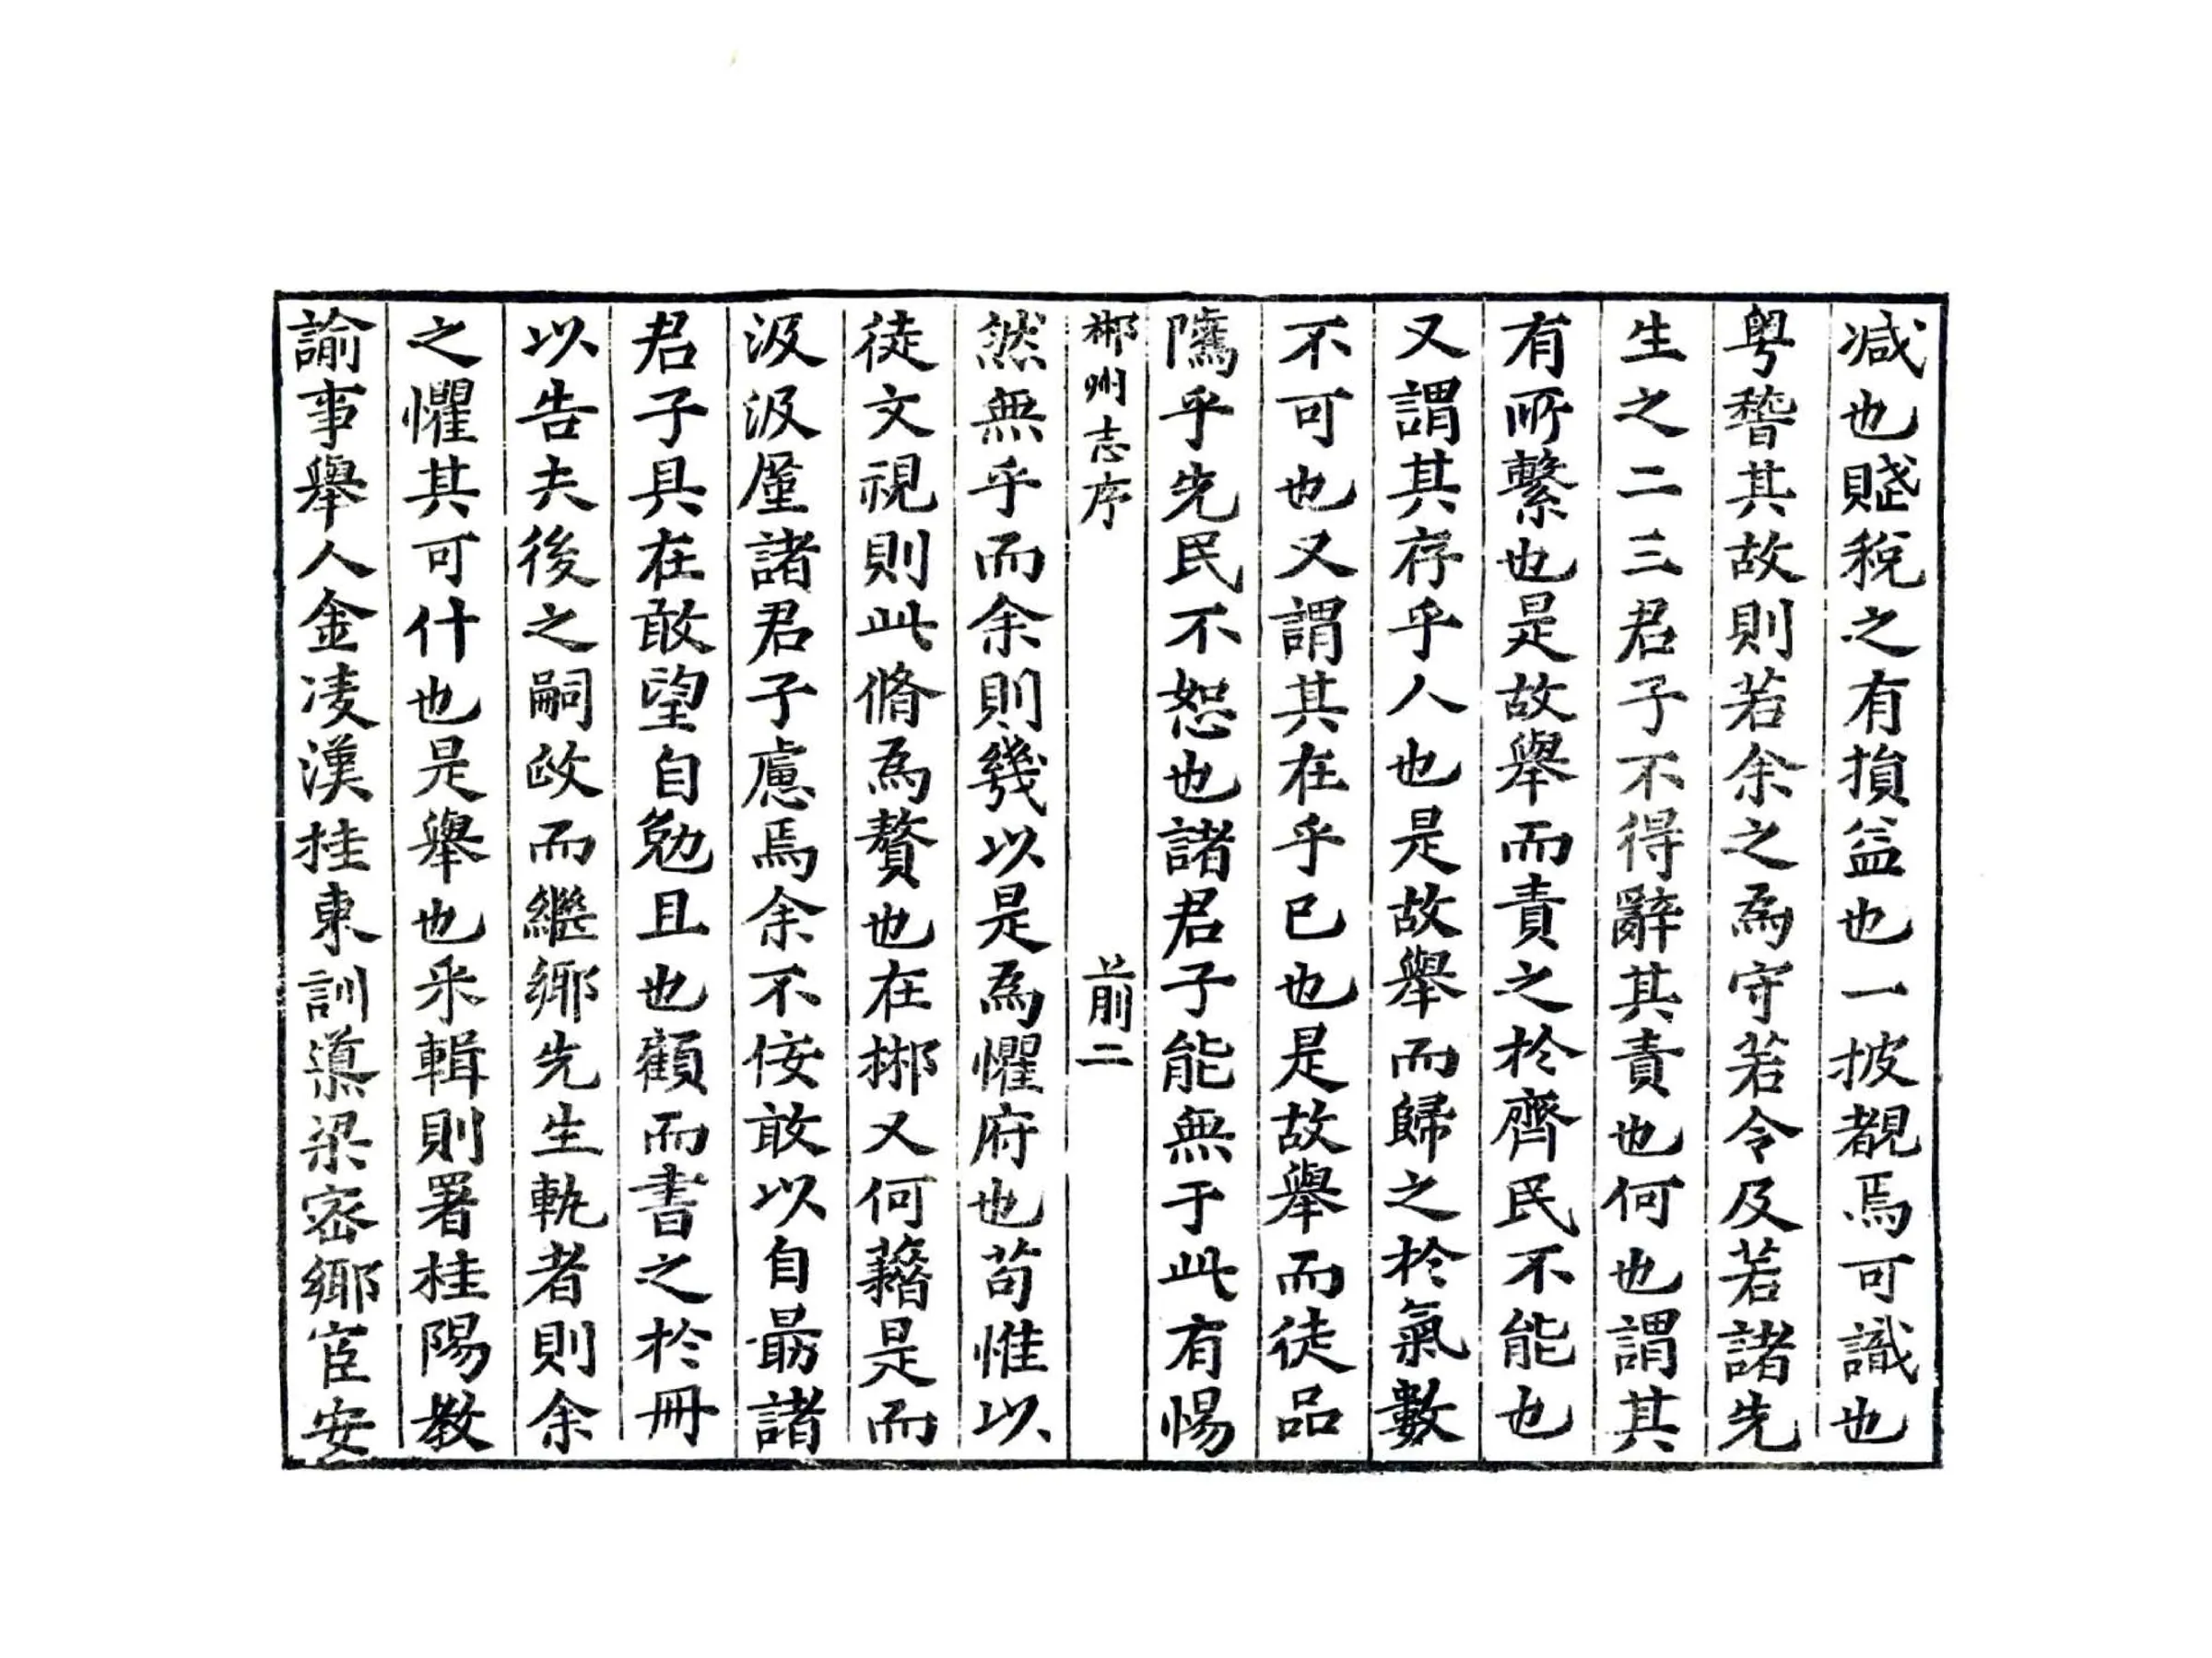 减也賦稅之有損益也一披覩焉可識也
粤䅲其故則若余之為守若令及若諸先
生之二三君子不得辭其責也何也謂其
有所繫也是故舉而責之於齊民不能也
又謂其存乎人也是故舉而歸之於氣數
不可也又謂其在乎已也是故舉而徒品
隲乎先民不恕也諸君子能無于此有惕
郴州志序 前二
然無乎而余則幾以是為懼府也苟惟以
徒文視則此脩為贅也在郴又何藉是而
汲汲厪諸君子慮焉余不佞敢以自勗諸
君子具在敢望自勉且也顧而書之於冊
以告夫後之嗣政而繼鄉先生軌者則余
之懼其可什也是舉也釆輯則署桂陽教
諭事舉人金凌漢桂東訓導梁宻鄉宦安